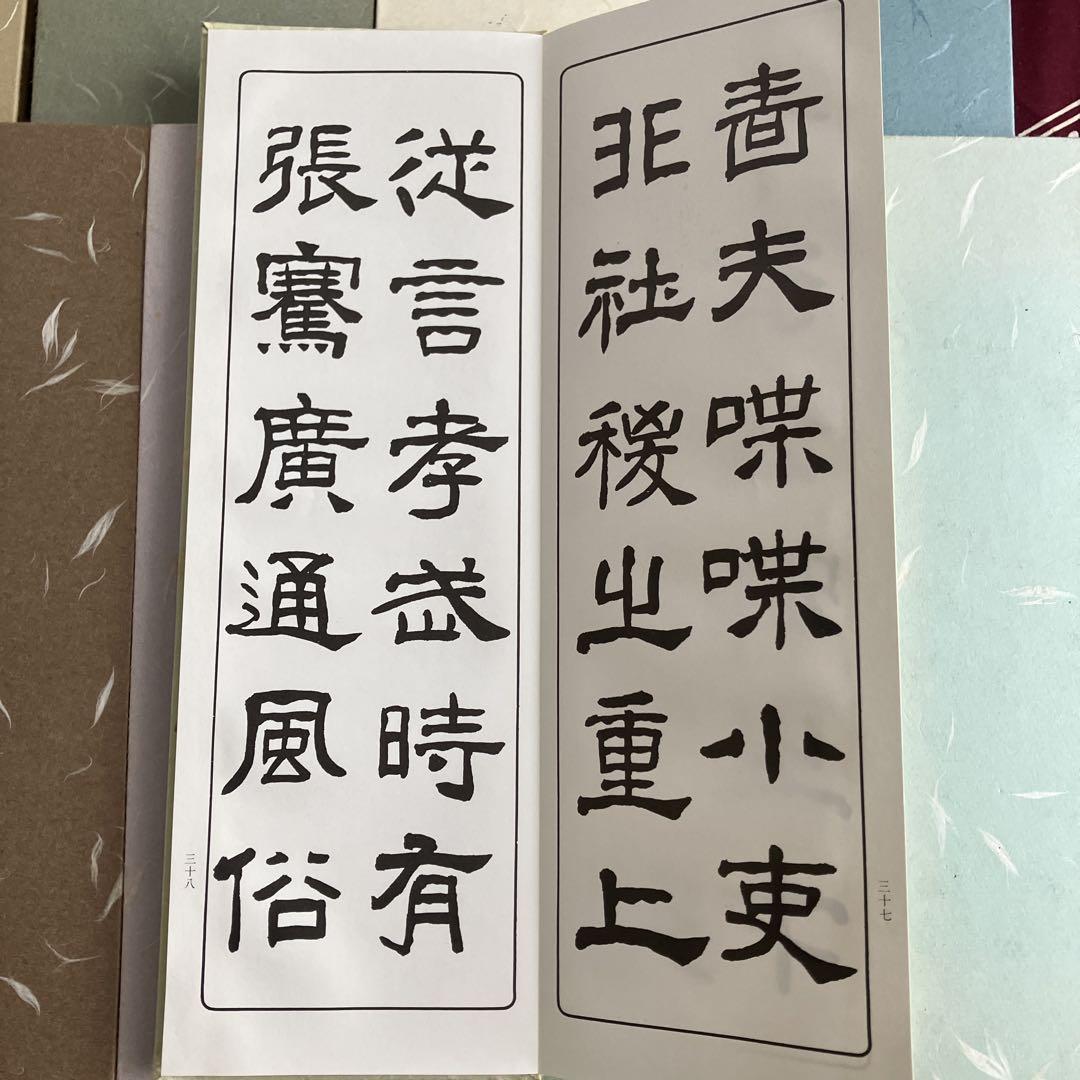 嗇夫喋喋小吏
非社稷之重上
三十七
從言孝武時有
張騫廣通風俗
三十八